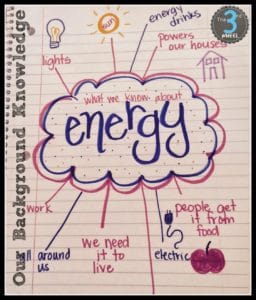 Our Background Knowledge
energy
drinks
sun
powers
our houses
lights
what we know about
energy
work
all around
us
we need
it to
live
electric
people get
it from
food
The
3
WHEEL